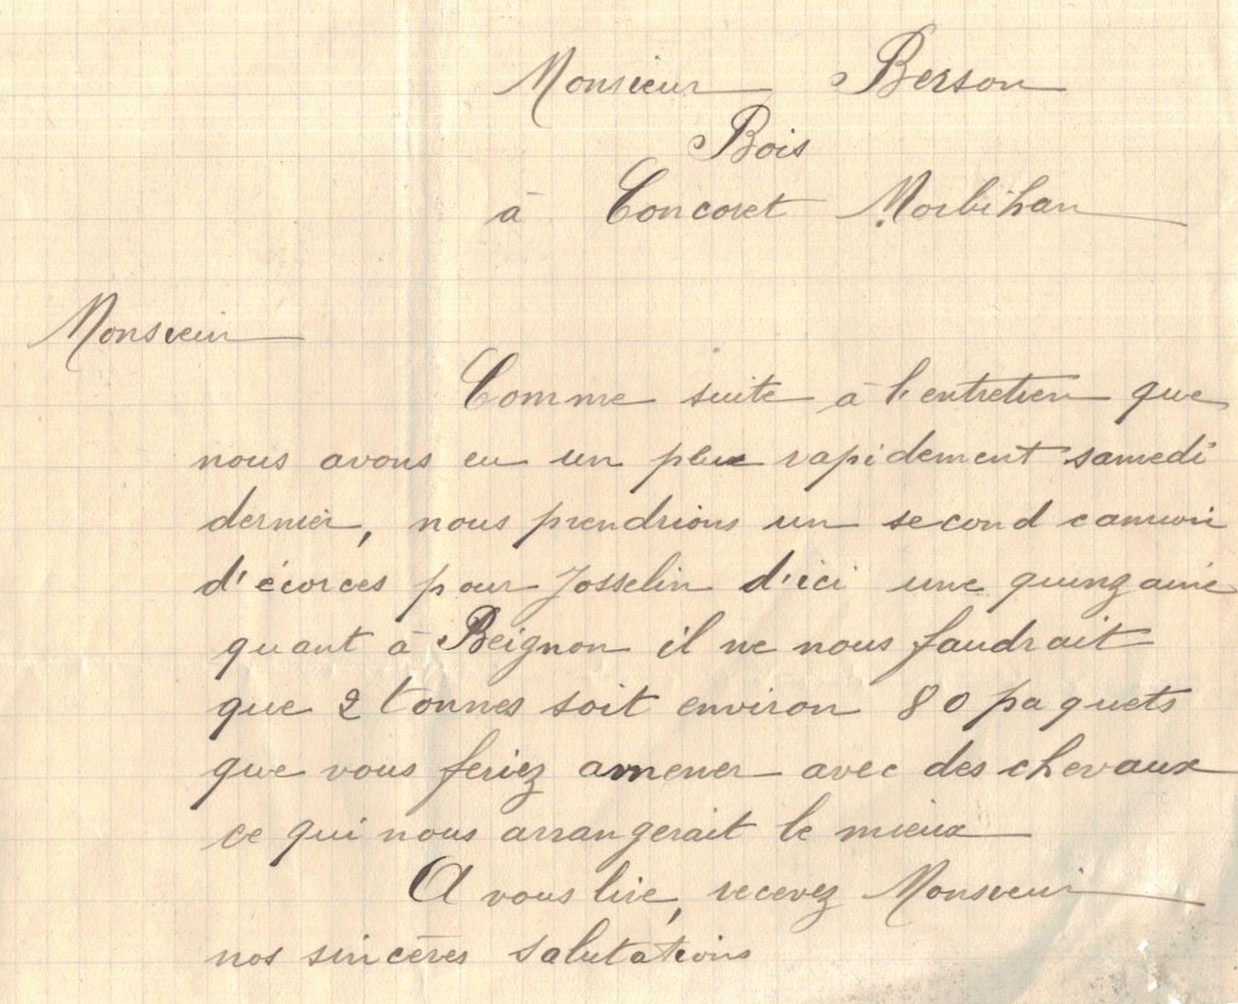 Monsieur Berson
Bois
à Concoret Morbihan
Monsieur
Comme suite à l'entretien que
nous avons eu un peu rapidement samedi
dernier, nous prendrions un second camion
d'écorces pour Josselin d'ici une quinzaine
quant à Beignon il ne nous faudrait
que 2 tonnes soit environ 80 paquets
que vous feriez amener avec des chevaux
ce qui nous arrangerait le mieux
A vous lire, recevez Monsieur
nos sincères salutations